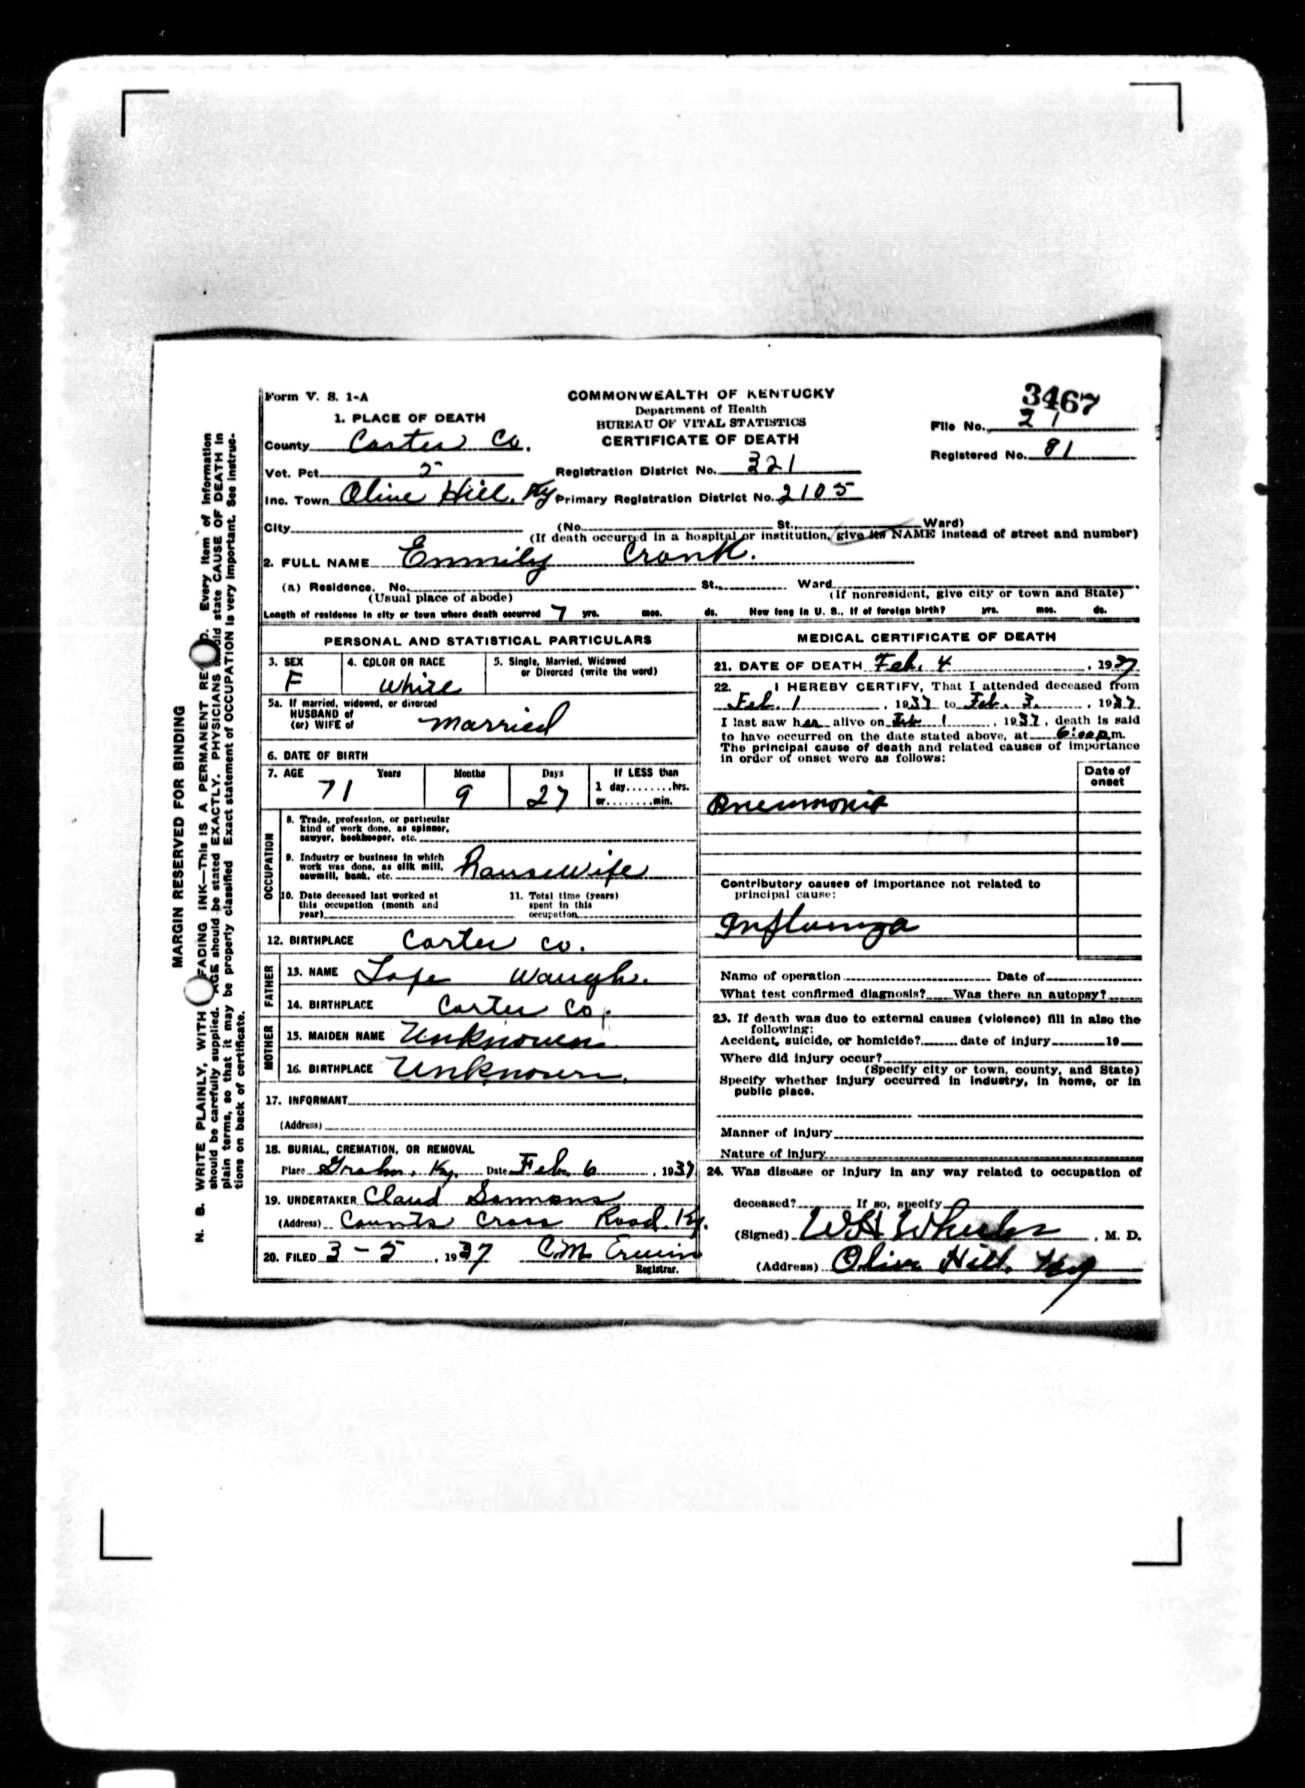 Form V. S. 1-A
COMMONWEALTH OF KENTUCKY
Department of Health
BUREAU OF VITAL STATISTICS
CERTIFICATE OF DEATH
3467
File No. 21
Registered No. 81
1. PLACE OF DEATH
County Carter Co.
Vot. Pct.
Registration District No. 321
Inc. Town Olive Hill, Ky
Primary Registration District No. 2105
City (No. St., Ward)
(If death occurred in a hospital or institution, give its NAME instead of street and number)
2. FULL NAME Emmily Cronk.
(a) Residence. No. St., Ward
(Usual place of abode) (If nonresident, give city or town and State)
Length of residence in city or town where death occurred 7 yrs. mos. ds. How long in U. S., if of foreign birth? yrs. mos. ds.
PERSONAL AND STATISTICAL PARTICULARS
3. SEX F
4. COLOR OR RACE White
5. Single, Married, Widowed
or Divorced (write the word)
5a. If married, widowed, or divorced
HUSBAND of
(or) WIFE of married
6. DATE OF BIRTH
7. AGE 71 Years 9 Months 27 Days
If LESS than
1 day........hrs.
or........min.
OCCUPATION
8. Trade, profession, or particular
kind of work done, as spinner,
sawyer, bookkeeper, etc.
9. Industry or business in which
work was done, as silk mill,
sawmill, bank, etc. housewife
10. Date deceased last worked at
this occupation (month and
year)
11. Total time (years)
spent in this
occupation
12. BIRTHPLACE Carter Co.
FATHER
13. NAME Waugh.
14. BIRTHPLACE Carter Co.
MOTHER
15. MAIDEN NAME Unknown
16. BIRTHPLACE Unknown.
17. INFORMANT
(Address)
18. BURIAL, CREMATION, OR REMOVAL
Place Grahn, Ky. Date Feb 6, 1937
19. UNDERTAKER Claud
(Address) Counts Cross Road. Ky.
20. FILED 3-5, 1937 C.M. Erwin
Registrar.
MEDICAL CERTIFICATE OF DEATH
21. DATE OF DEATH Feb. 4, 1937
22. I HEREBY CERTIFY, That I attended deceased from
Feb. 1, 1937 to Feb. 3, 1937
I last saw her alive on Feb 1, 1937, death is said
to have occurred on the date stated above, at 6:00 p.m.
The principal cause of death and related causes of importance
in order of onset were as follows:
Date of
onset
Pneumonia
Contributory causes of importance not related to
principal cause:
Influenza
Name of operation Date of
What test confirmed diagnosis? Was there an autopsy?
23. If death was due to external causes (violence) fill in also the
following:
Accident, suicide, or homicide? date of injury 19
Where did injury occur?
(Specify city or town, county, and State)
Specify whether injury occurred in industry, in home, or in
public place.
Manner of injury
Nature of injury
24. Was disease or injury in any way related to occupation of
deceased? If so, specify
(Signed) , M. D.
(Address) Olive Hill. Ky
MARGIN RESERVED FOR BINDING
N. B. WRITE PLAINLY, WITH FADING INK—This IS A PERMANENT RE D. Every item of information
should be carefully supplied. AGE should be stated EXACTLY. PHYSICIANS should state CAUSE OF DEATH in
plain terms, so that it may be properly classified. Exact statement of OCCUPATION is very important. See instruc-
tions on back of certificate.